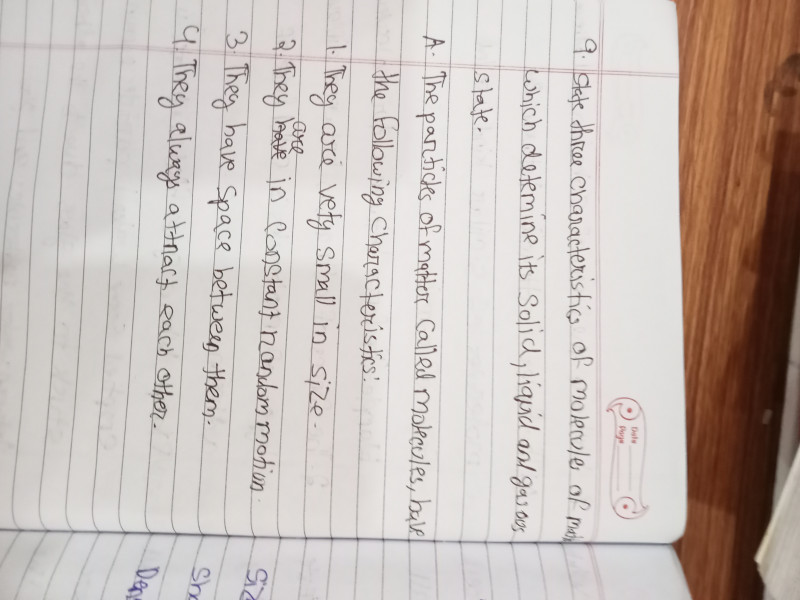 Date
Page
9. State three characteristics of molecules of
which determine its solid, liquid and gaseous
state.
A. The particles of matter called molecules, have
the following characteristics:
1. They are very small in size.
are
2. They have in constant random motion.
3. They have space between them.
4. They always attract each other.